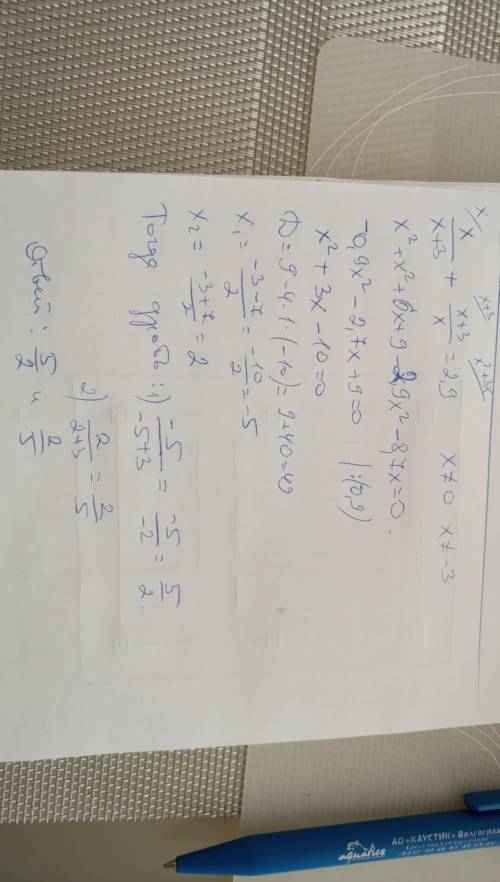 x/ x+3/ x²+3x/
x/(x+3) + (x+3)/x = 2,9 x≠0 x≠-3
x²+x²+6x+9-2,9x²-8,7x=0.
-0,9x²-2,7x+9=0 |:(0,9)
x²+3x-10=0
D=9-4·1·(-10)=9+40=49
x₁=(-3-7)/2=-10/2=-5
x₂=(-3+7)/2=2
Тогда дробь: 1) -5/(-5+3)=-5/-2=5/2.
2) 2/(2+3)=2/5
Ответ: 5/2 и 2/5
aquatics
АО «КАУСТИК» Волгоград